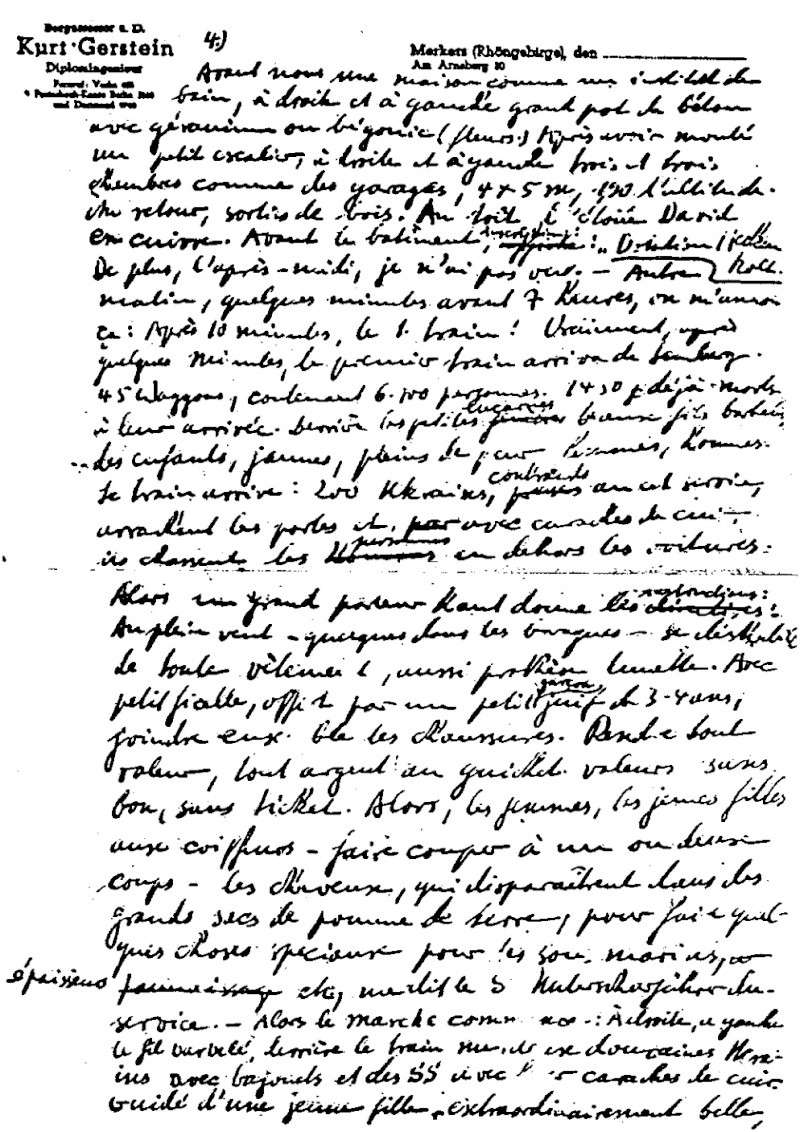 Bergassessor a. D.
Kurt Gerstein
Diplomingenieur
4.)
Merkers (Rhöngebirge), den
Am Arnsberg 10
Avant nous une maison comme un institut de
bain, à droite et à gauche grand pot de béton
avec géranium ou bégonie (fleurs.) Après avoir monté
un petit escalier, à droite et à gauche trois et trois
chambres comme des garages, 4 x 5 m, 1,90 d'altitude.
Au retour, sorties de bois. Au toit, l'étoile David
en cuivre. Avant le batiment, inscription:
De plus, l'après-midi, je n'ai pas vu. — Autre
matin, quelques minutes avant 7 heures, on m'annon
ça: Après 10 minutes, le 1. train! Vraiment, après
quelques minutes, le premier train arriva de Lemberg.
45 Waggons, contenant 6.700 personnes. 1450 déjà morts
à leur arrivée. Derrière les petites lucarnes aux fils barbelés,
des enfants, jaunes, pleins de peur femmes, hommes.
Le train arrive: 200 Ukrains, contraints au cet service,
arrachent les portes et avec cravaches de cuir
ils chassent les personnes en dehors les voitures.
Alors un grand parleur haut donne les instructions:
Au plein vent – quelques dans les baraques – se déshabiller
de toute vêtement, aussi prothèse lunette. Avec
petit ficelle, offert par un petit garçon juif de 3-4 ans,
joindre les chaussures. Rendre tout
valeur, tout argent au guichet valeurs sans
bon, sans ticket. Alors, les femmes, les jeunes filles
aux coiffeurs – faire couper à un ou deux
coups – les cheveux, qui disparaîtrent dans des
grands sacs de pomme de terre, pour faire quel-
ques choses speciaux pour les sous marins,
épaisseurs etc, me dit le Unterscharführer du
service. — Alors le marche commence: À droite, à gauche
le fil barbelé, derrière douzaines Ukrai-
ins avec bajonets et des SS avec cravaches de cuir.
Guidé d'une jeune fille extraordinairement belle,